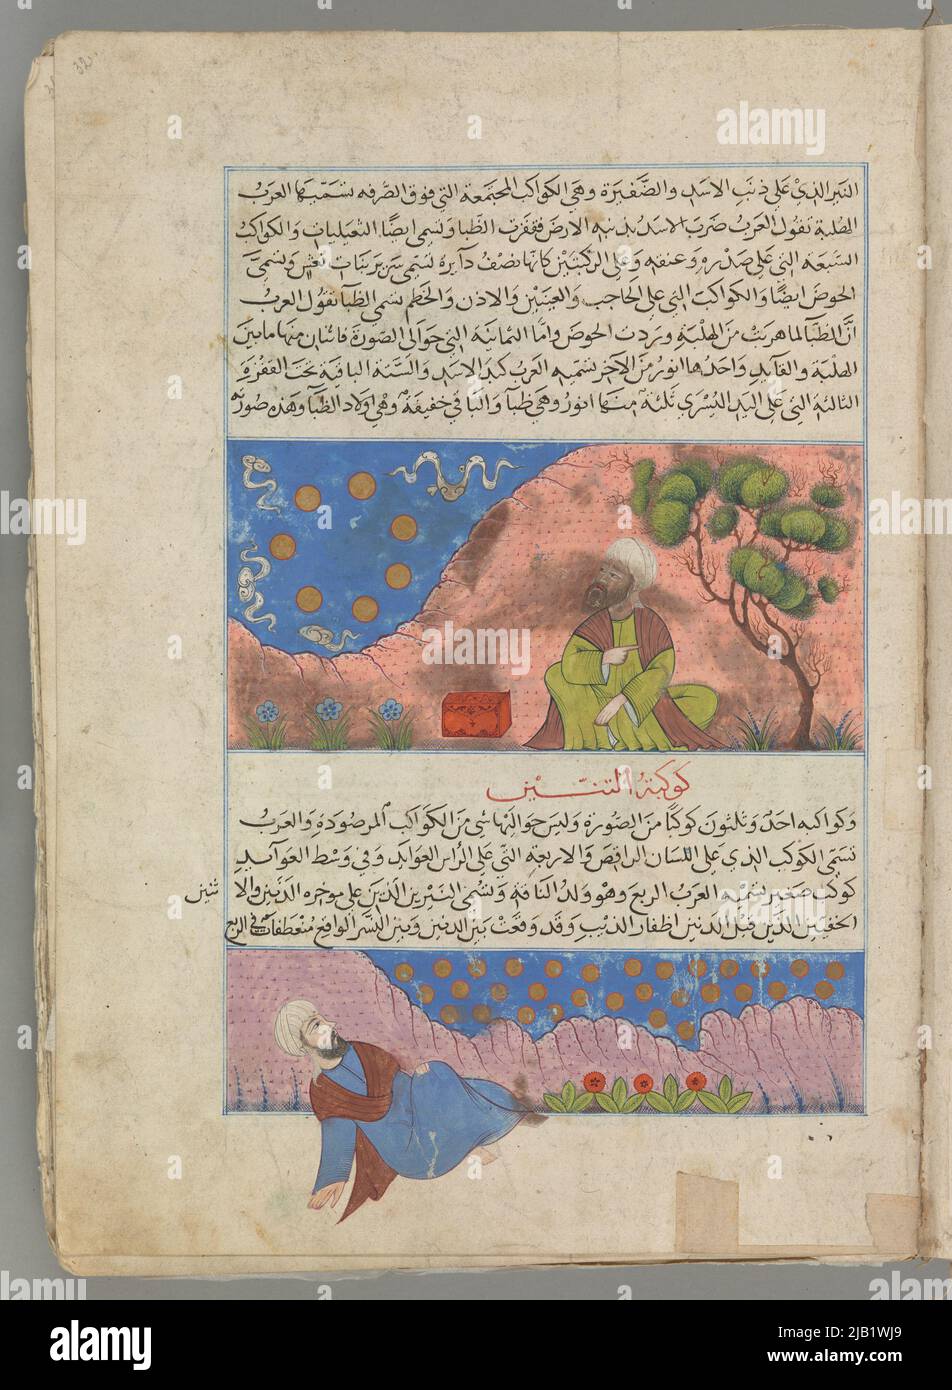 32
النير الذي على ذنب الاسد والضفيرة وهي الكواكب المجتمعة التي فوق الصرفه تسميها العرب
الهلبة تقول العرب ضرب الاسد بذنبه الارض فقفزت الظبا وتسمى ايضا الثعيلبات والكواكب
السبعة التي على صدره وعنقه وعلى الركبتين كانها نصف دآيرة تسمى سرير بنات نعش وتسمى
الحوض ايضا والكواكب التي على الحاجب والعينين والاذن والخطم تسمى الظبآ تقول العرب
ان الظبآ لما هربت من الهلبة وردت الحوض واما الثمانية التي حوالى الصورة فاثنان منها ما بين
الهلبة والقآيد واحدها انور من الآخر تسميه العرب كبد الاسد والستة الباقية تحت القفزة
الثالثة التي على اليد اليسرى ثلثة منها انور وهي ظبآ والباقي خفيفة وهي اولاد الظبآ وهذه صورته
كوكبة التنين
وكواكبه احد وثلثون كوكبا من الصورة وليس حواليها شي من الكواكب المرصودة والعرب
تسمى الكوكب الذي على اللسان الراقص والاربعة التي على الراس العوايد وفي وسط العوآيد
كوكب صغير تسميه العرب الربع وهو ولد الناقة وتسمى النيرين الذين على موخره الذنبين والا
ثنين
الخفيين اللذين قبل الذنبين اظفار الذيب وقد وقعت بين الذئبين وبين النسر الواقع منعطفات في الربع
alamy
Image ID: 2JB1WJ9
www.alamy.com